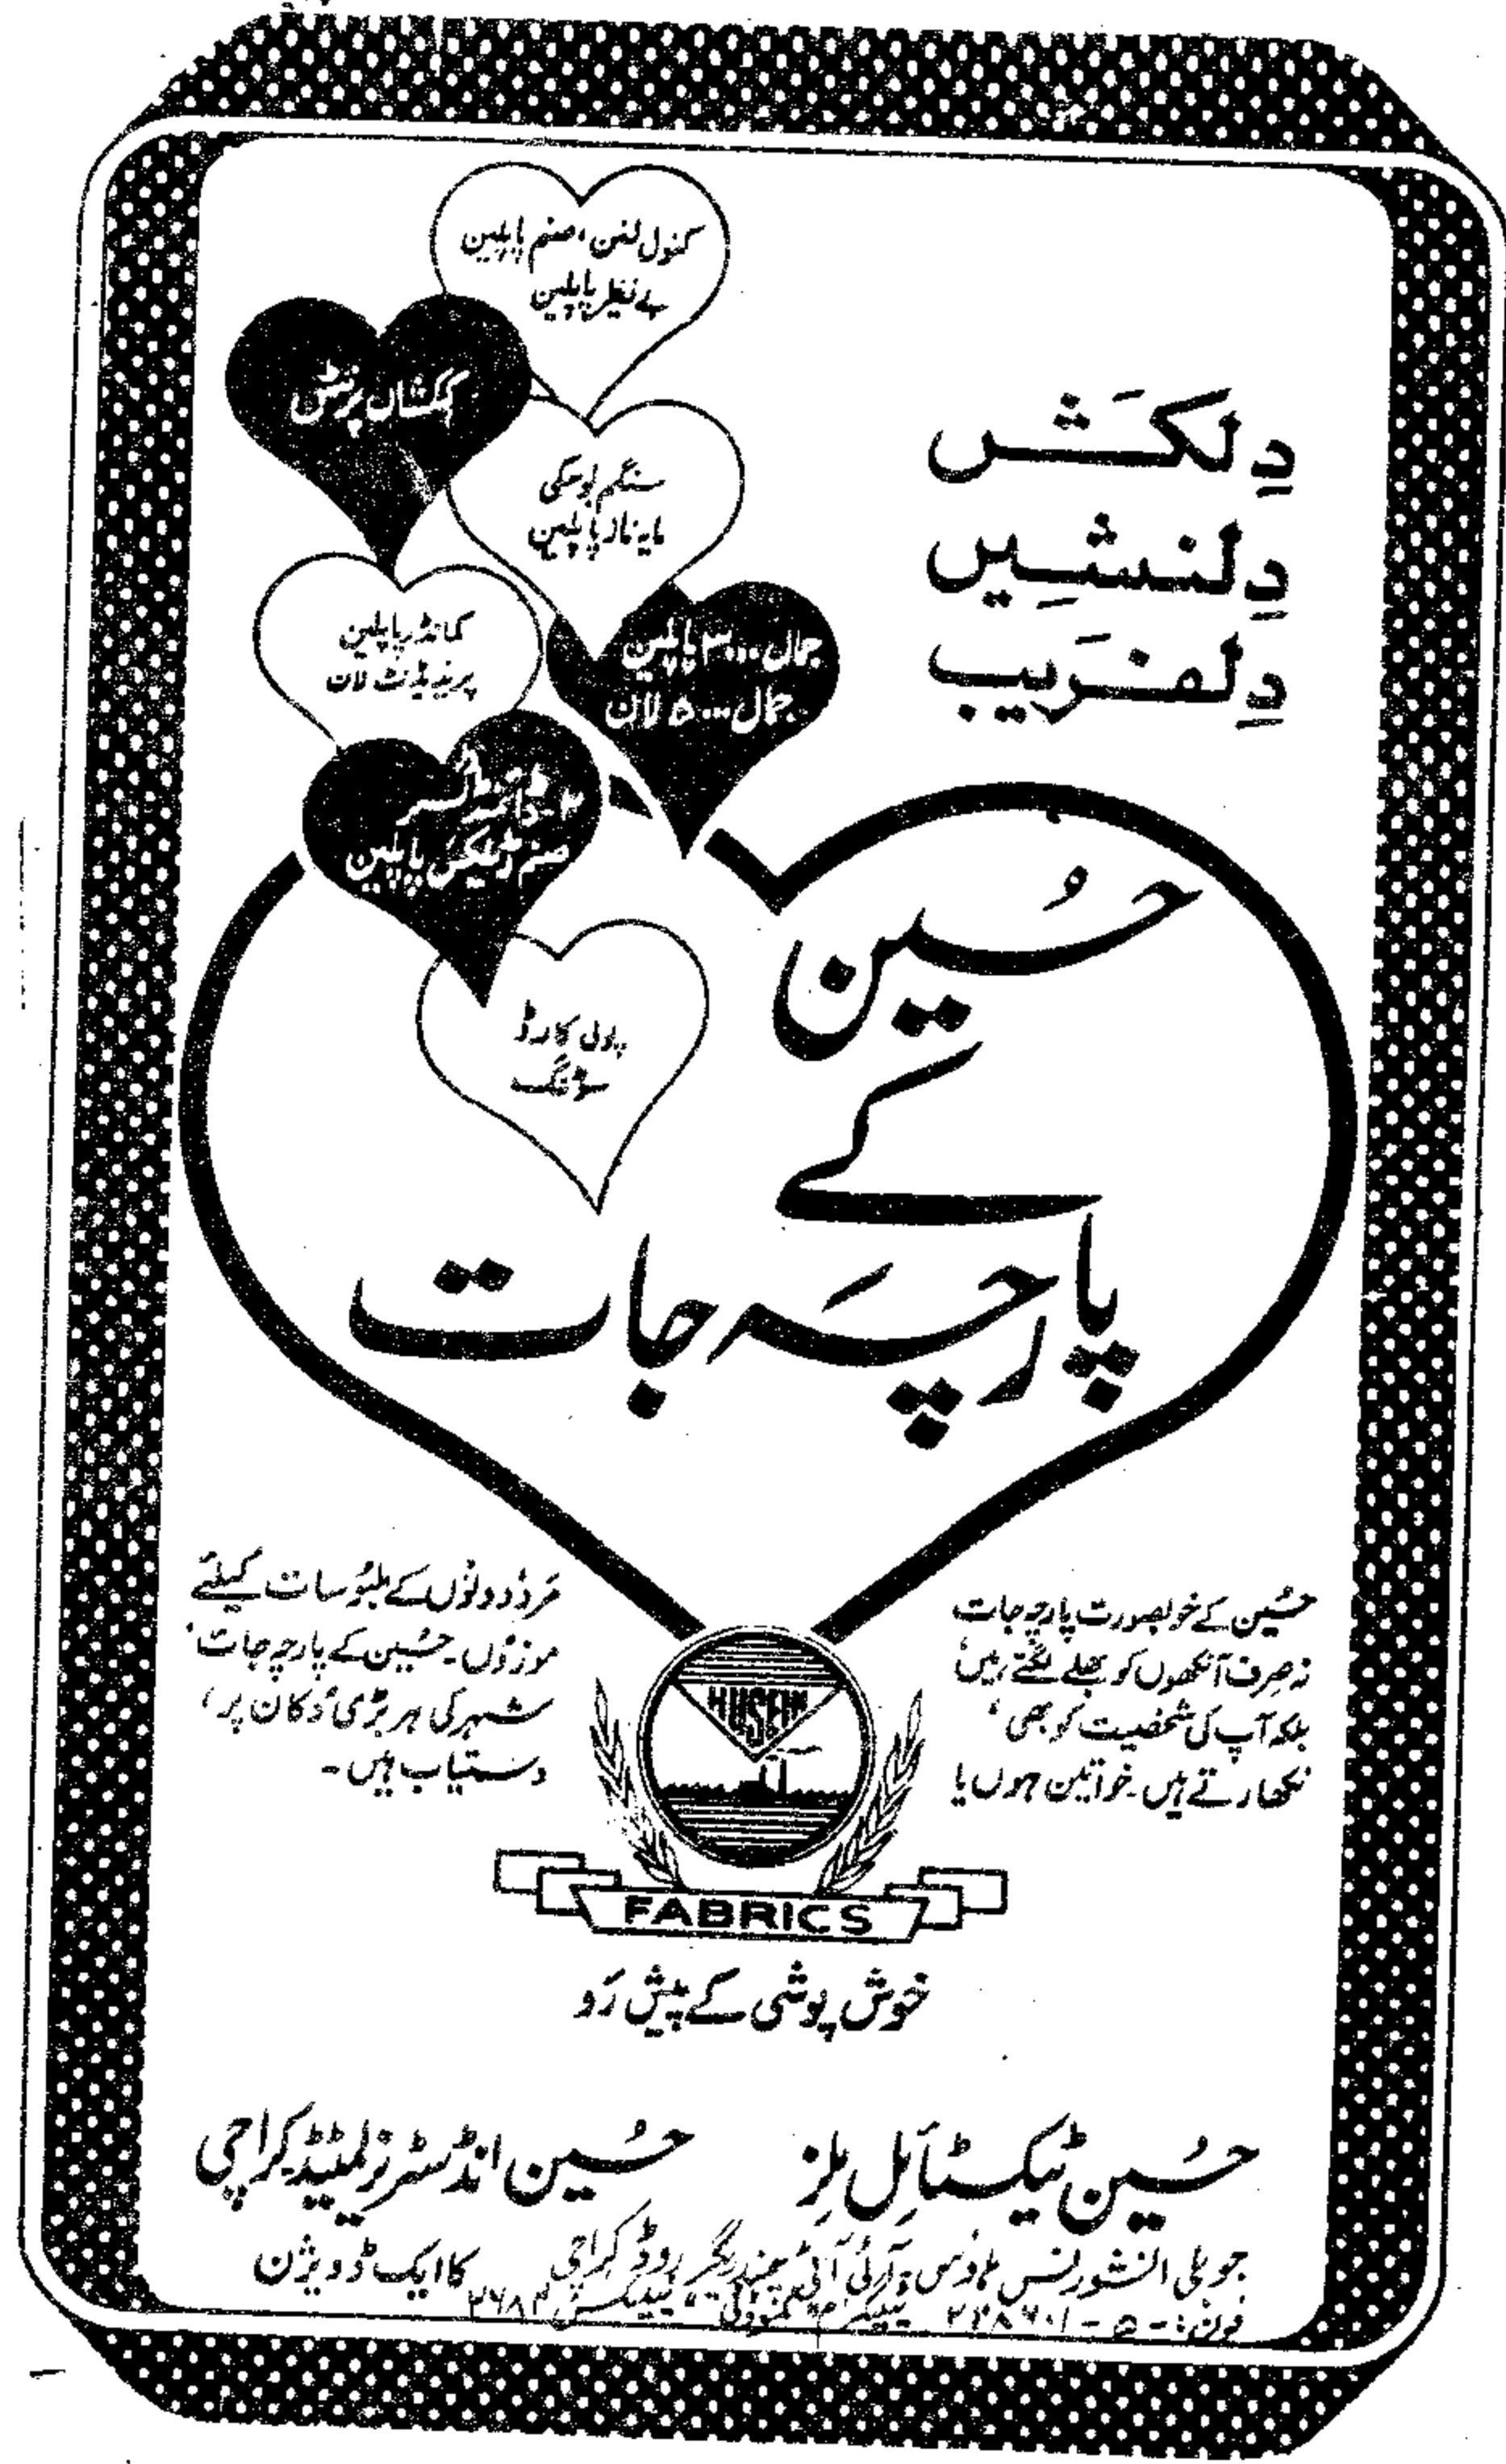 دِلکَش
دِلنشِیں
دِلفرَیب
کنول لنن، صنم پاپلین
بے نظیر پاپلین
کہکشاں پرنٹس
سنگم بوسکی
مایہ ناز پاپلین
کمانڈر پاپلین
پریذیڈنٹ لان
جمال ۳۰۰۰ پاپلین
جمال ۵۰۰۰ لان
صنم ڈیلکس پاپلین
پولی کارڈ
سوٹنگ
حُسین
کے
پارچَہ جات
حُسین کے خوبصورت پارچہ جات
نہ صِرف آنکھوں کو بھلے لگتے ہیں
بلکہ آپ کی شخصیت کو بھی
نکھارتے ہیں۔ خواتین ہوں یا
مَرد دونوں کے ملبُوسات کیلئے
موزوں۔ حُسین کے پارچہ جات
شہر کی ہر بڑی دُکان پر،
دستیاب ہیں۔
HUSEIN
FABRICS
خوش پوشی کے پیش رَو
حُسین ٹیکسٹائل مِلز
حُسین انڈسٹریز لمیٹڈ کراچی
کا ایک ڈویژن
جوبلی انشورنس ہاؤس، آئی آئی چندریگر روڈ کراچی
فون: ۵-۲۲۸۶۰۱